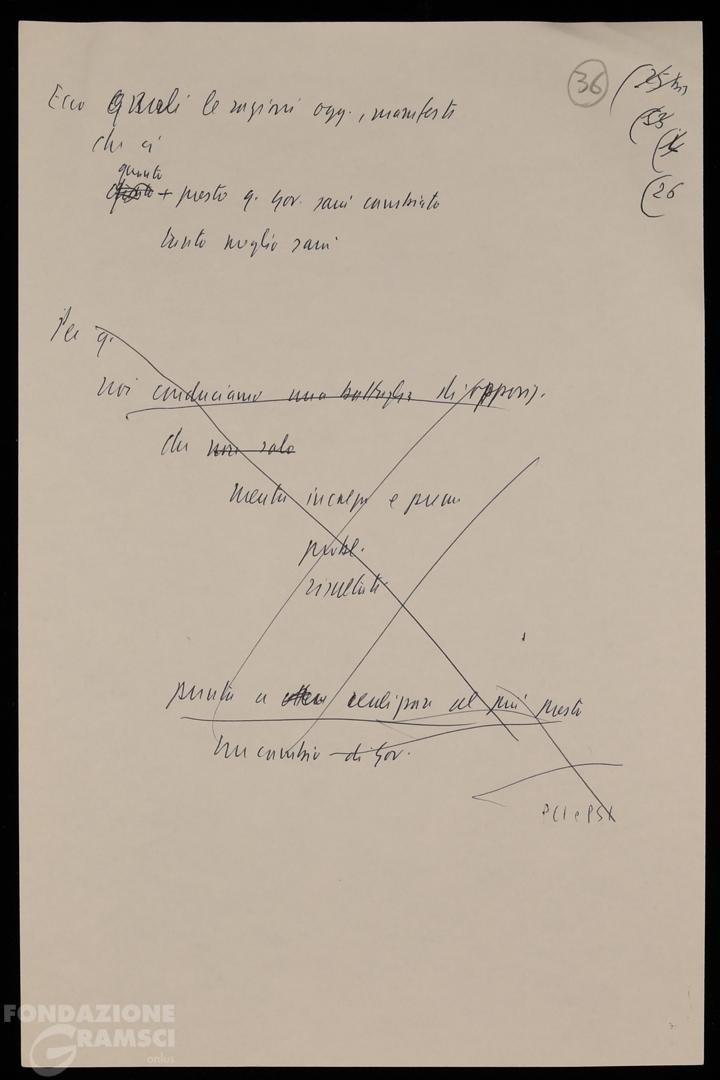 36
(26
Ecco quali le ragioni oggi, manifesti
che ci
quanto
+ presto q. Gov. sarà cambiato
tanto meglio sarà
Per q.
noi conduciamo una battaglia di opposiz.
che non solo
mentre incalza e preme
probl.
risultati
punta a realizzare al più presto
un cambio di Gov.
PCI e PSI
FONDAZIONE
GRAMSCI
onlus